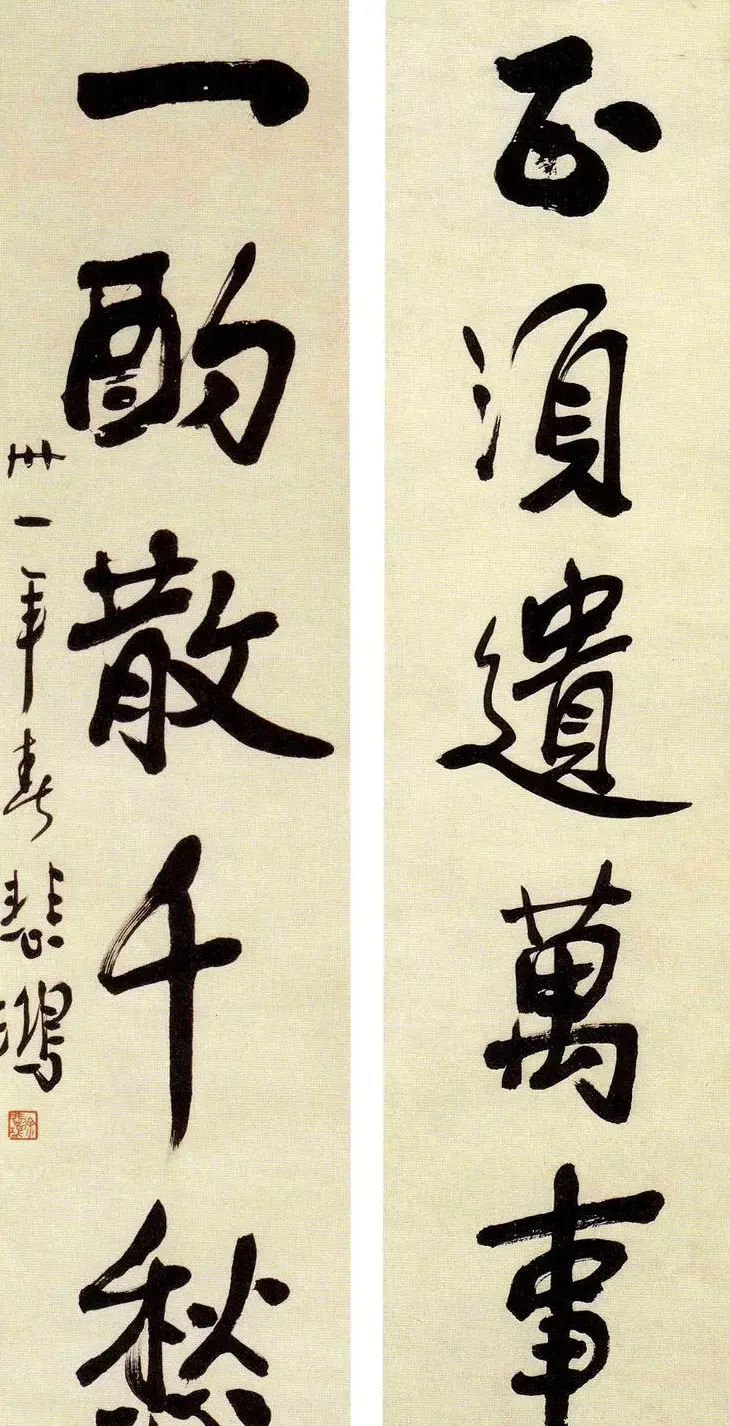 正須遺萬事
一酌散千愁
卅一年春悲鴻